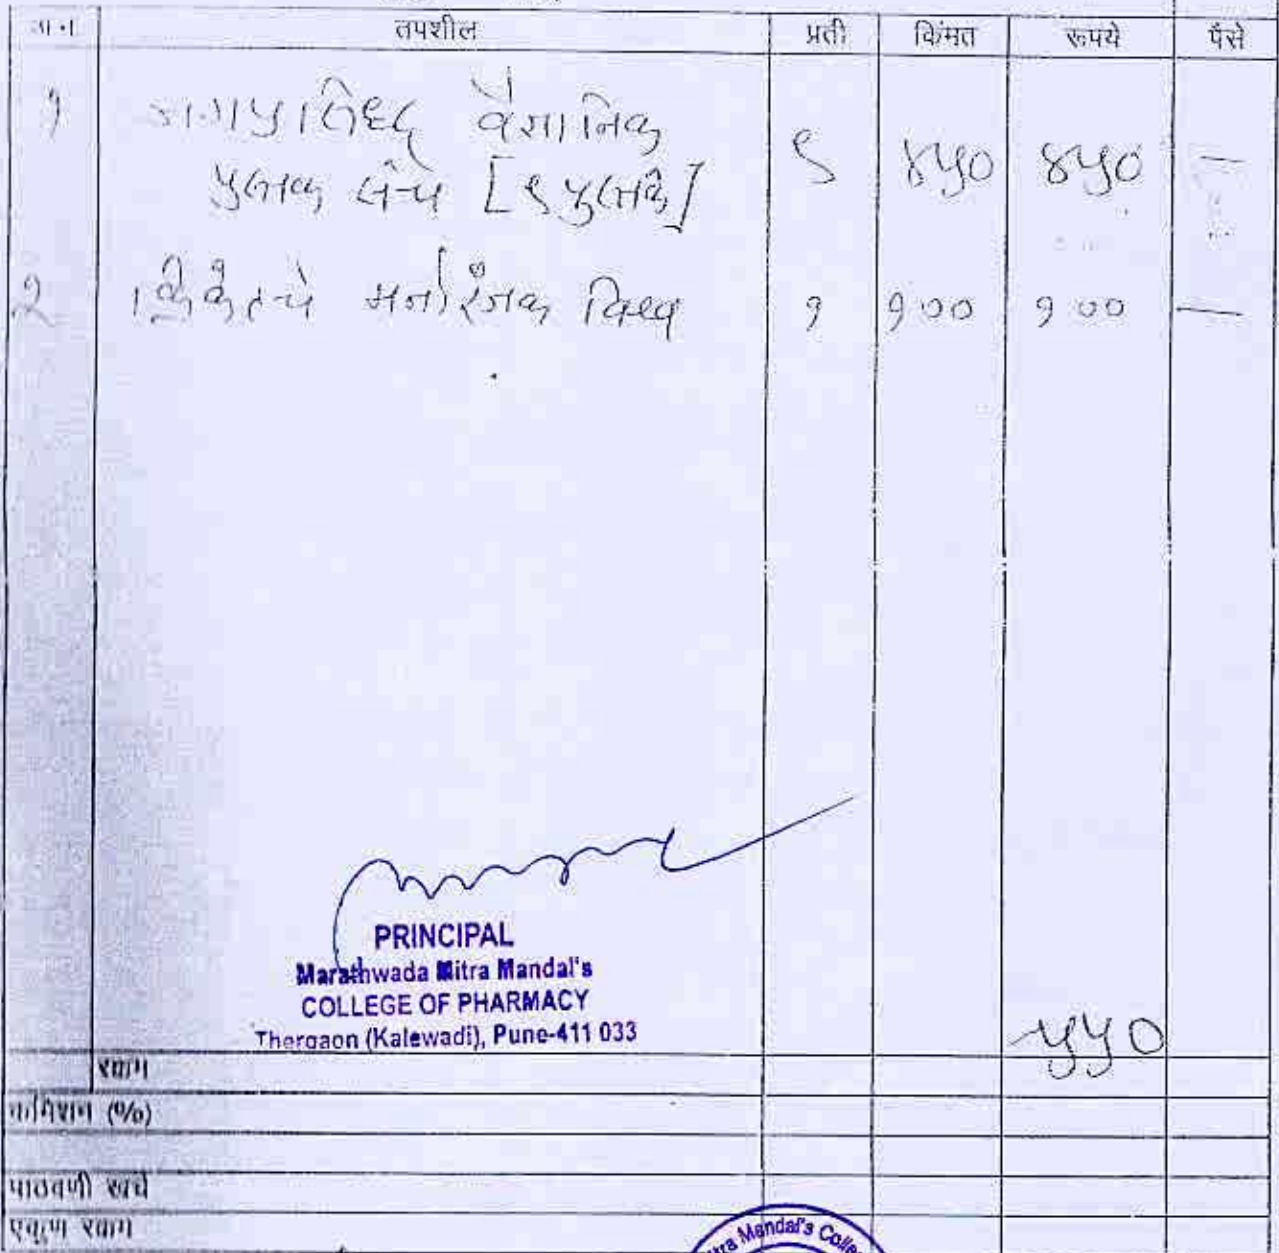 तपशील प्रती किंमत रूपये पैसे
१ जगप्रसिध्द वैज्ञानिक
पुस्तक संच [९ पुस्तके] ९ ४५० ४५० —
२ क्रिकेटचे मनोरंजक विश्व १ १०० १०० —
PRINCIPAL
Marathwada Mitra Mandal's
COLLEGE OF PHARMACY
Thergaon (Kalewadi), Pune-411 033
५५०
रक्कम
कमिशन (%)
पाठवणी खर्च
एकूण रक्कम
Mandal's